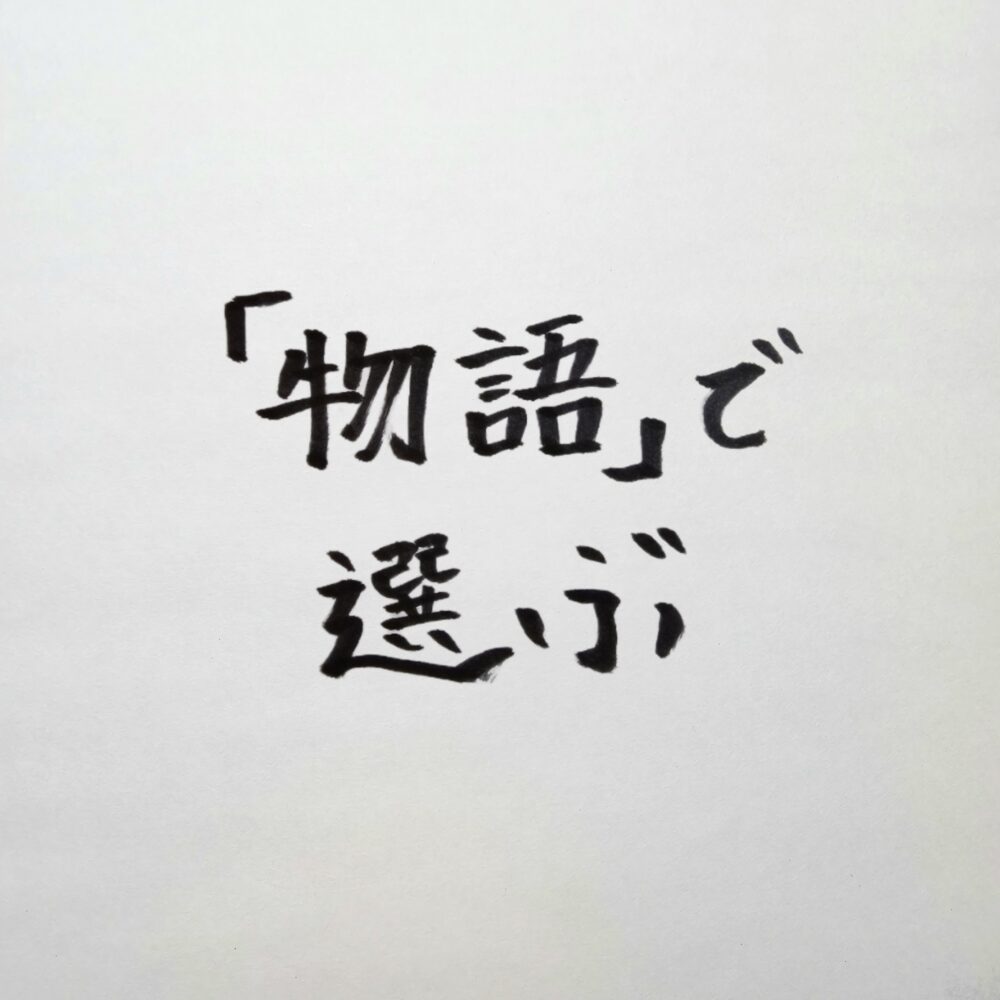 「物語」で
選ぶ